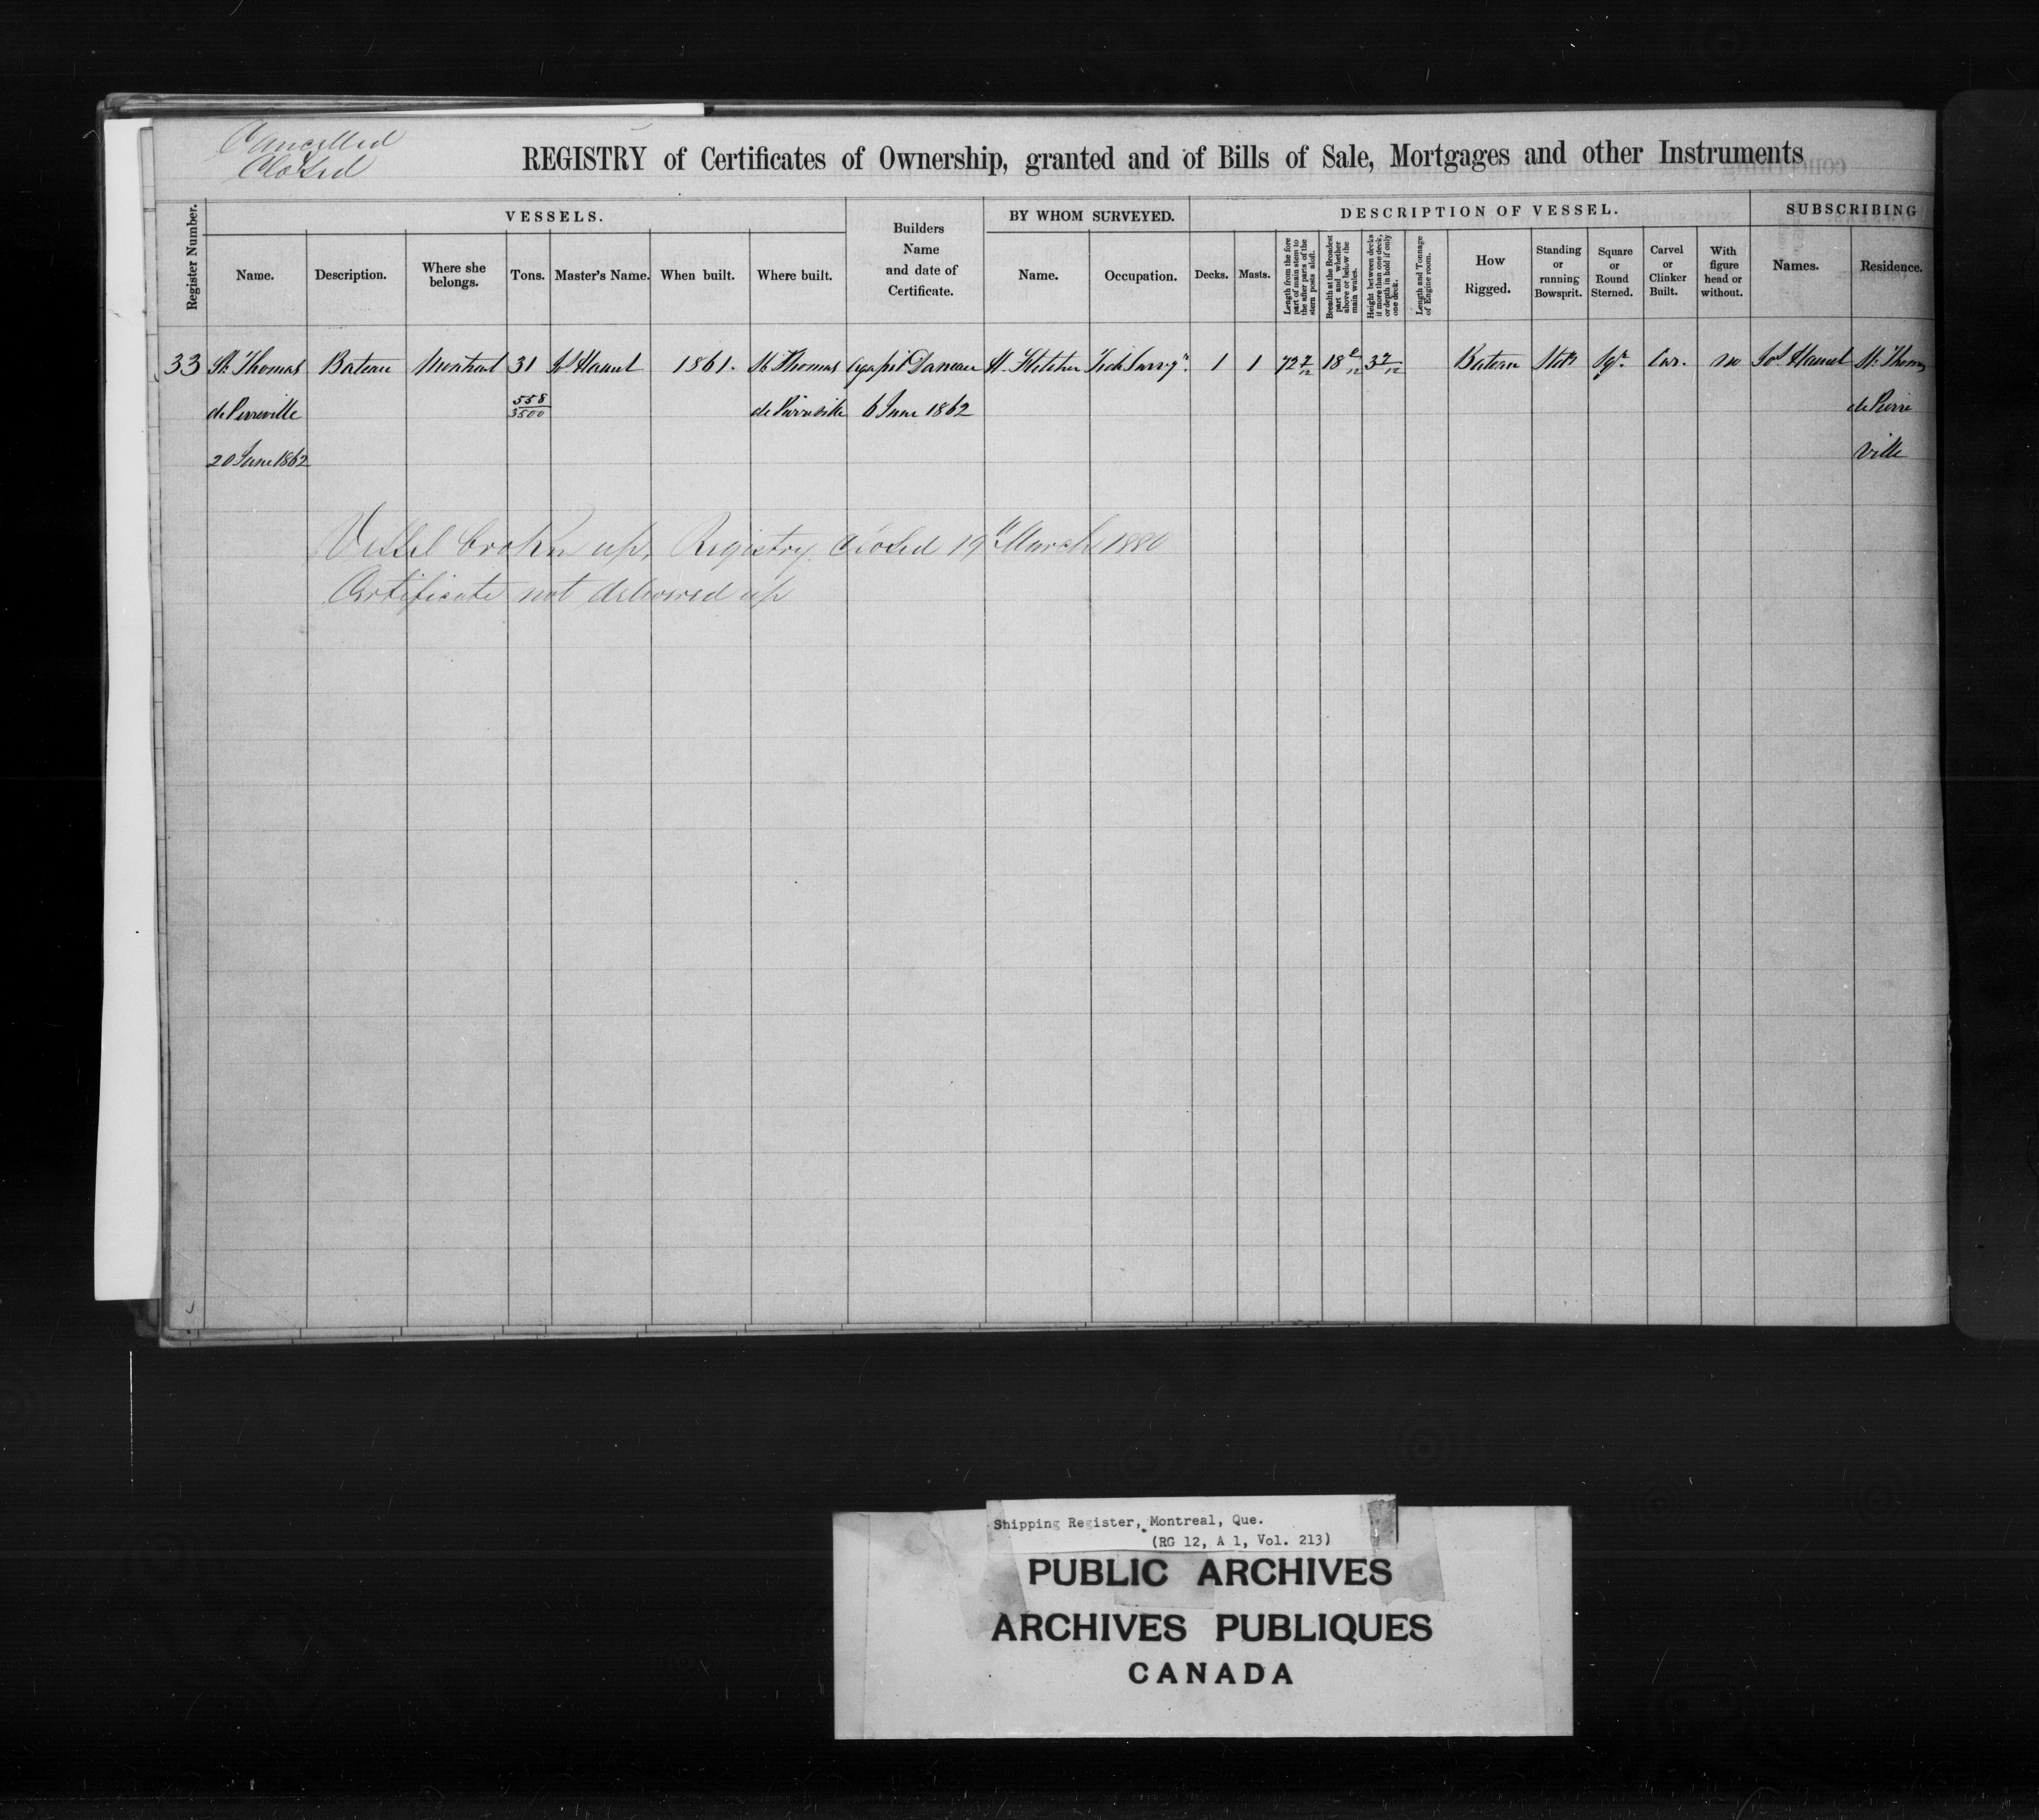 Cancelled
Closed
REGISTRY of Certificates of Ownership, granted and of Bills of Sale, Mortgages and other Instruments
Register Number.
VESSELS.
Name.
Description.
Where she belongs.
Tons.
Master's Name.
When built.
Where built.
Builders Name and date of Certificate.
BY WHOM SURVEYED.
Name.
Occupation.
DESCRIPTION OF VESSEL.
Decks.
Masts.
Length from the fore part of main stem to the after parts of the stern posts aloft.
Breadth at the Broadest part and whether above or below the main wales.
Height between decks if more than one deck, or depth in hold if only one deck.
Length and Tonnage of Engine room.
How Rigged.
Standing or running Bowsprit.
Square or Round Sterned.
Carvel or Clinker Built.
With figure head or without.
SUBSCRIBING
Names.
Residence.
33 St. Thomas Bateau Montreal 31 1861. St. Thomas Daneau H. Fletcher 1 1 72 7/12 18 3 Bateau Sqr. Car. no St. Thomas
de Pierreville 558/3500 de Pierreville 6 June 1862 de Pierre
20 June 1862 Ville
Vessel broken up, Registry closed 19th March 1880
Certificate not delivered up
Shipping Register, Montreal, Que.
(RG 12, A 1, Vol. 213)
PUBLIC ARCHIVES
ARCHIVES PUBLIQUES
CANADA